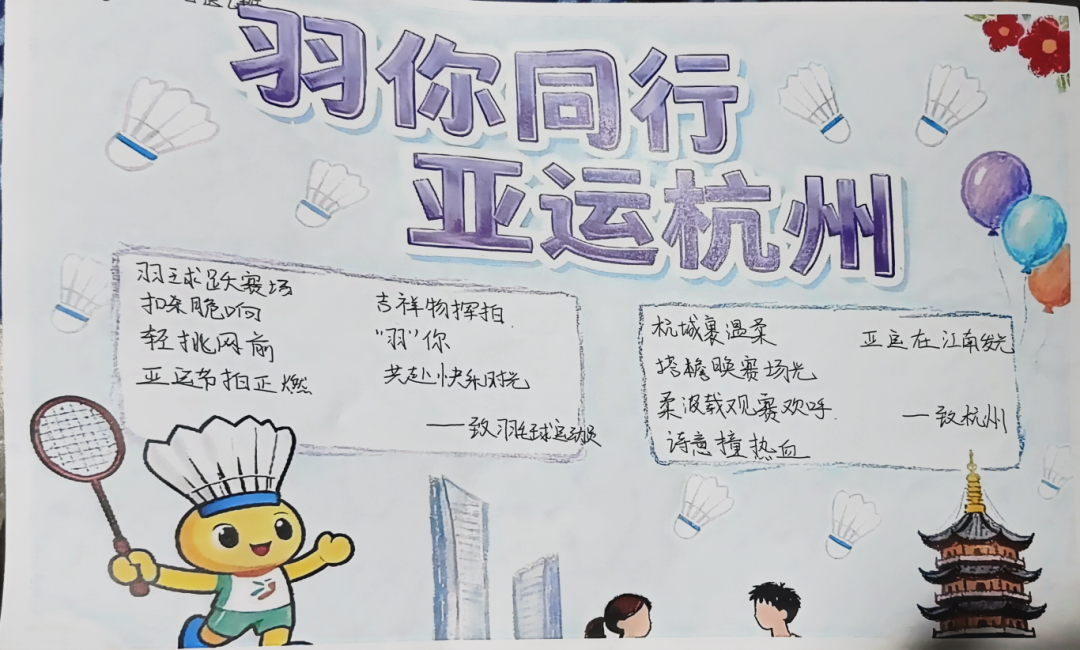 羽你同行
亚运杭州
羽球跃赛场
扣杀脆响
轻挑网前
亚运节拍正燃
吉祥物挥拍
"羽"你
共赴快乐时光
——致羽毛球运动员
杭城裹温柔
塔檐映赛场光
柔波载观赛欢呼
诗意撞热血
亚运在江南发光
——致杭州